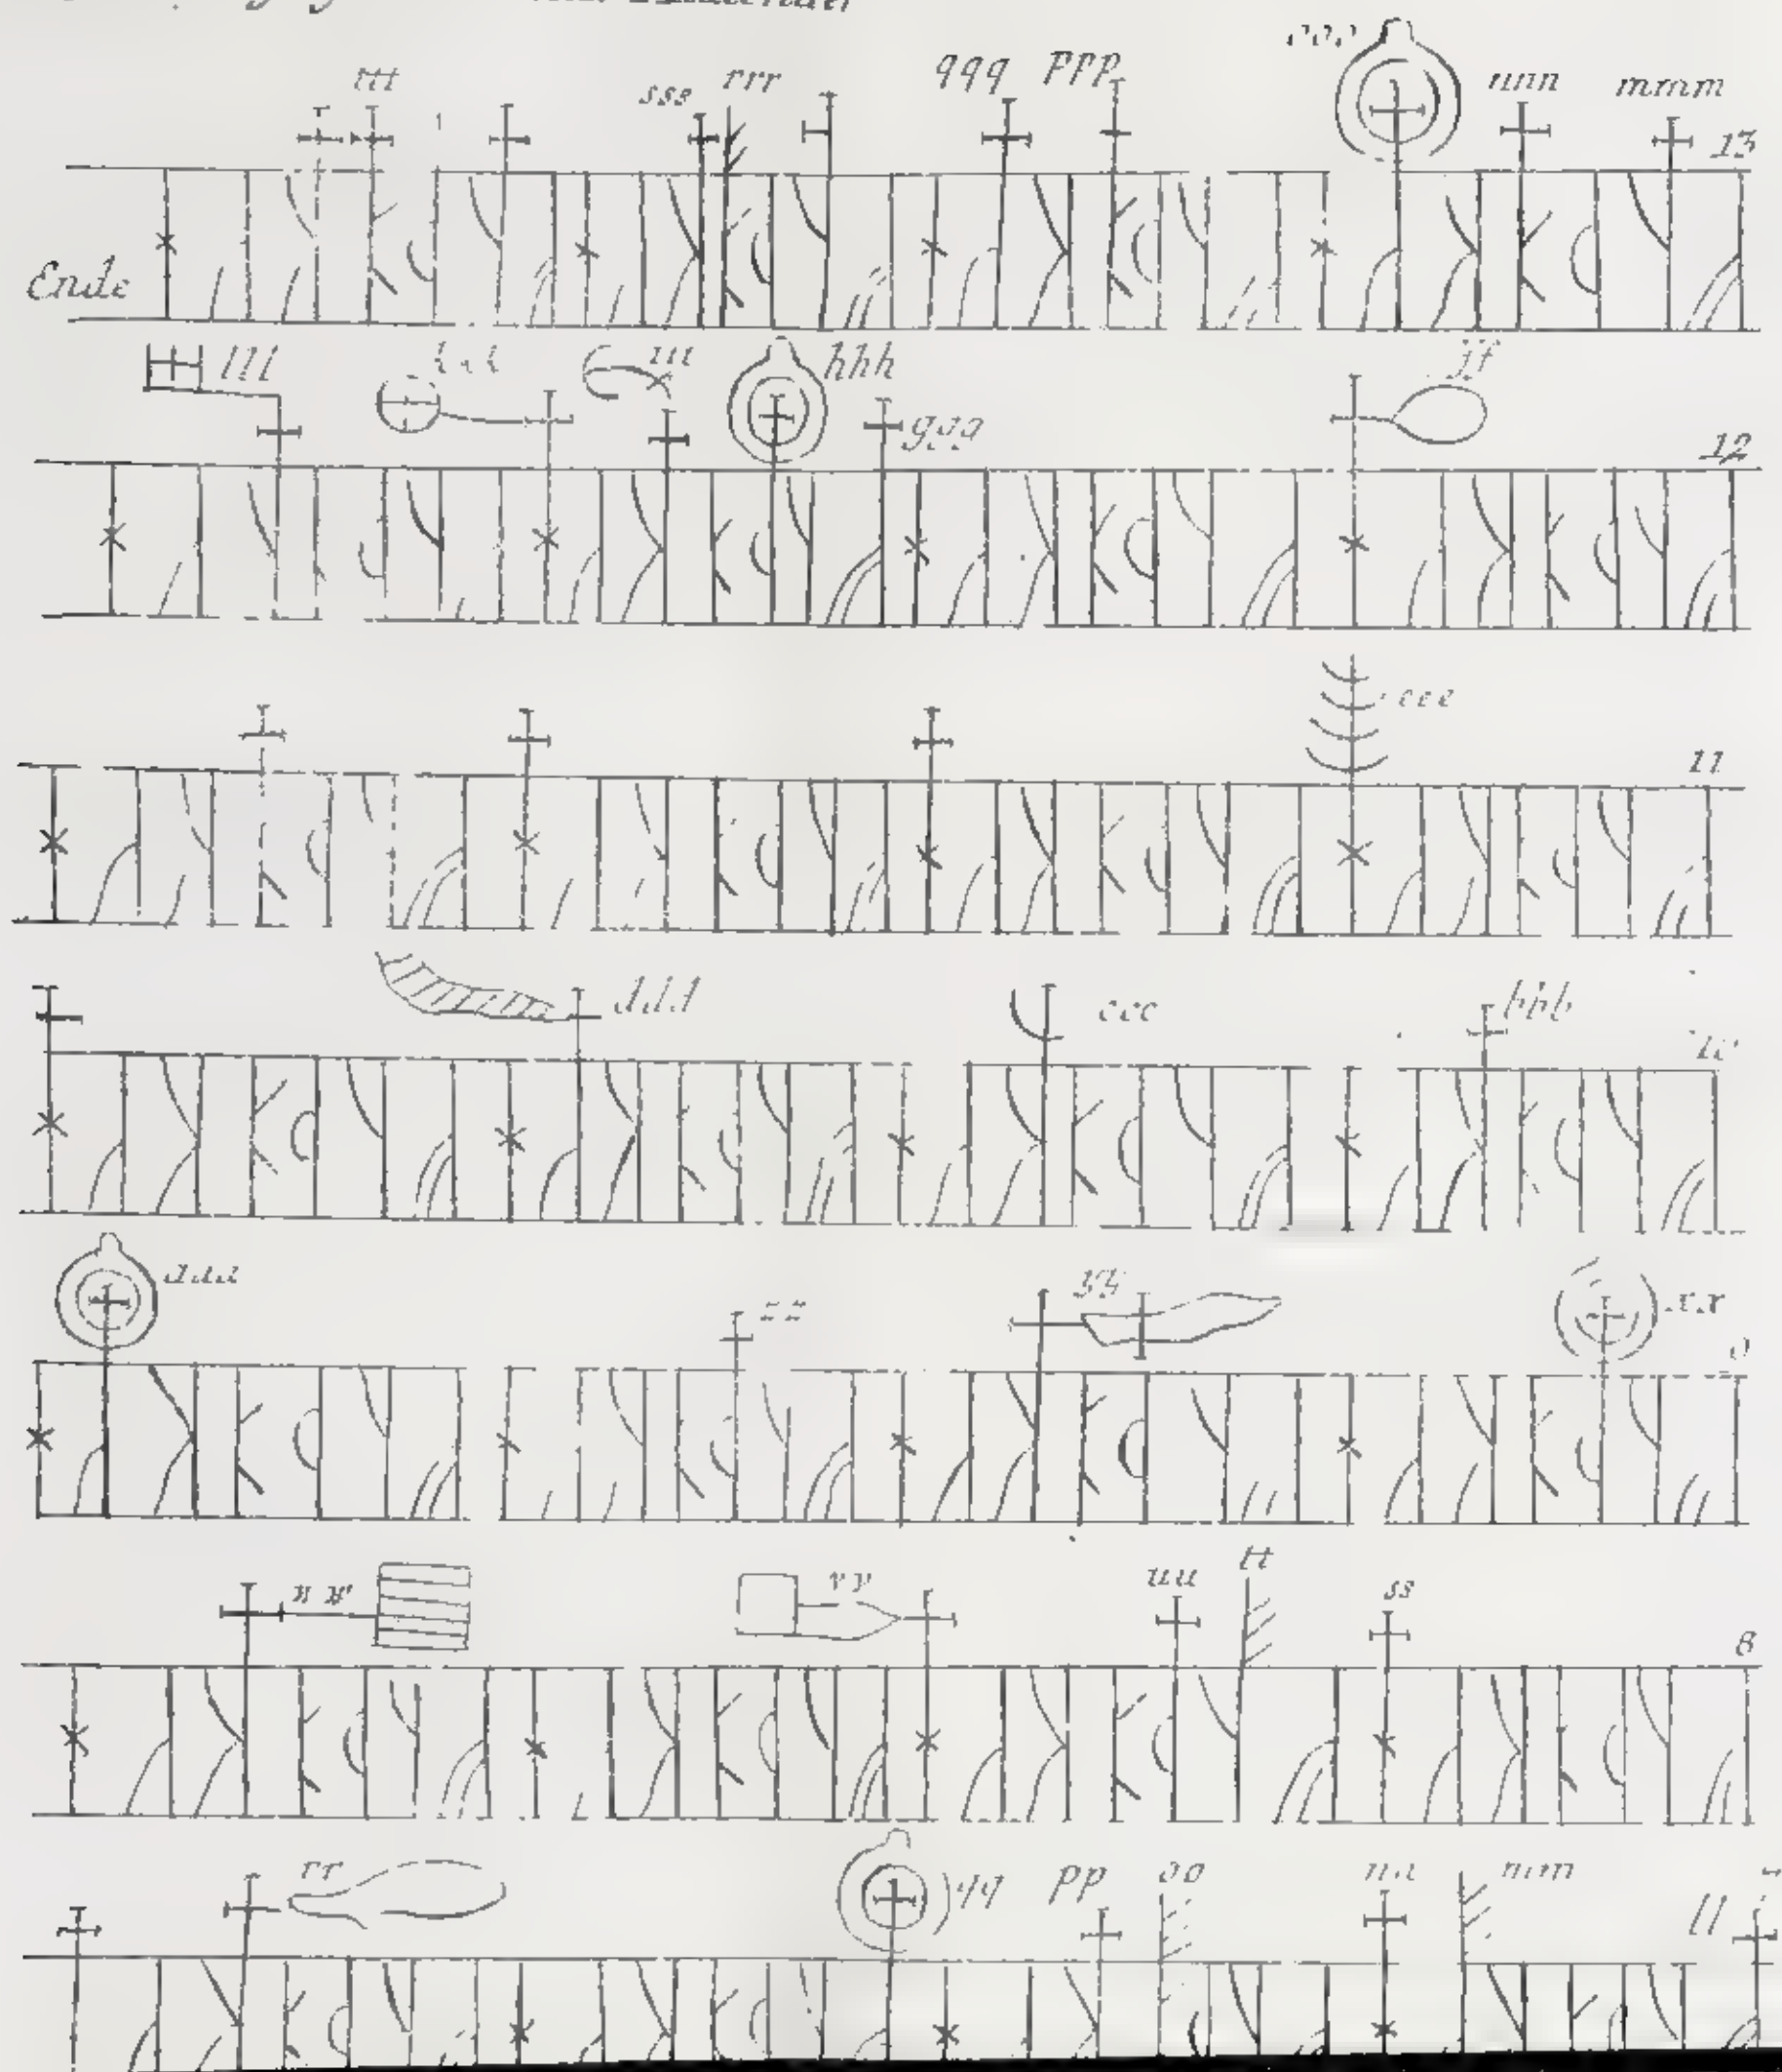 ttt sss rrr qqq ppp ooo nnn mmm
13
Ende
lll kkk iii hhh ggg ff
12
eee
11
ddd ccc bbb
10
aaa zz yy xx
9
ww vv uu tt ss
8
rr qq pp oo nn mm ll